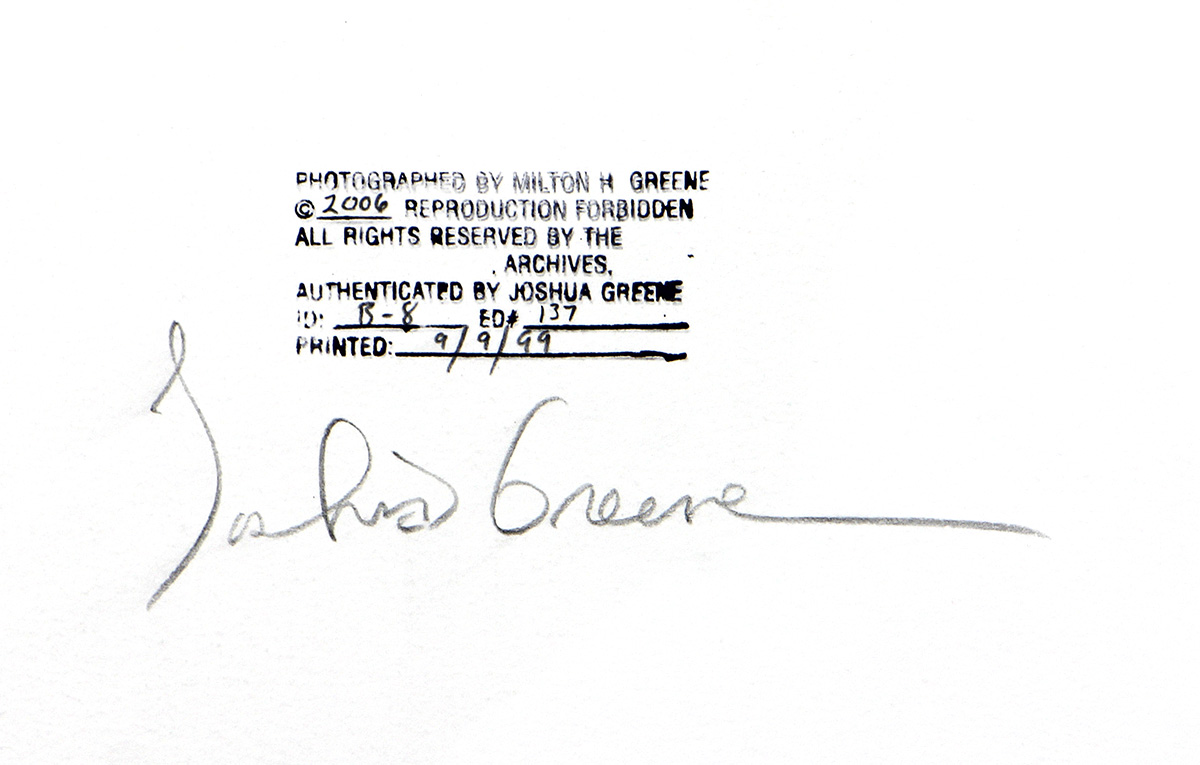 PHOTOGRAPHED BY MILTON H GREENE
© 2006 REPRODUCTION FORBIDDEN
ALL RIGHTS RESERVED BY THE
ARCHIVES.
AUTHENTICATED BY JOSHUA GREENE
ID: B-8 ED# 137
PRINTED: 9/9/99
Joshua Greene